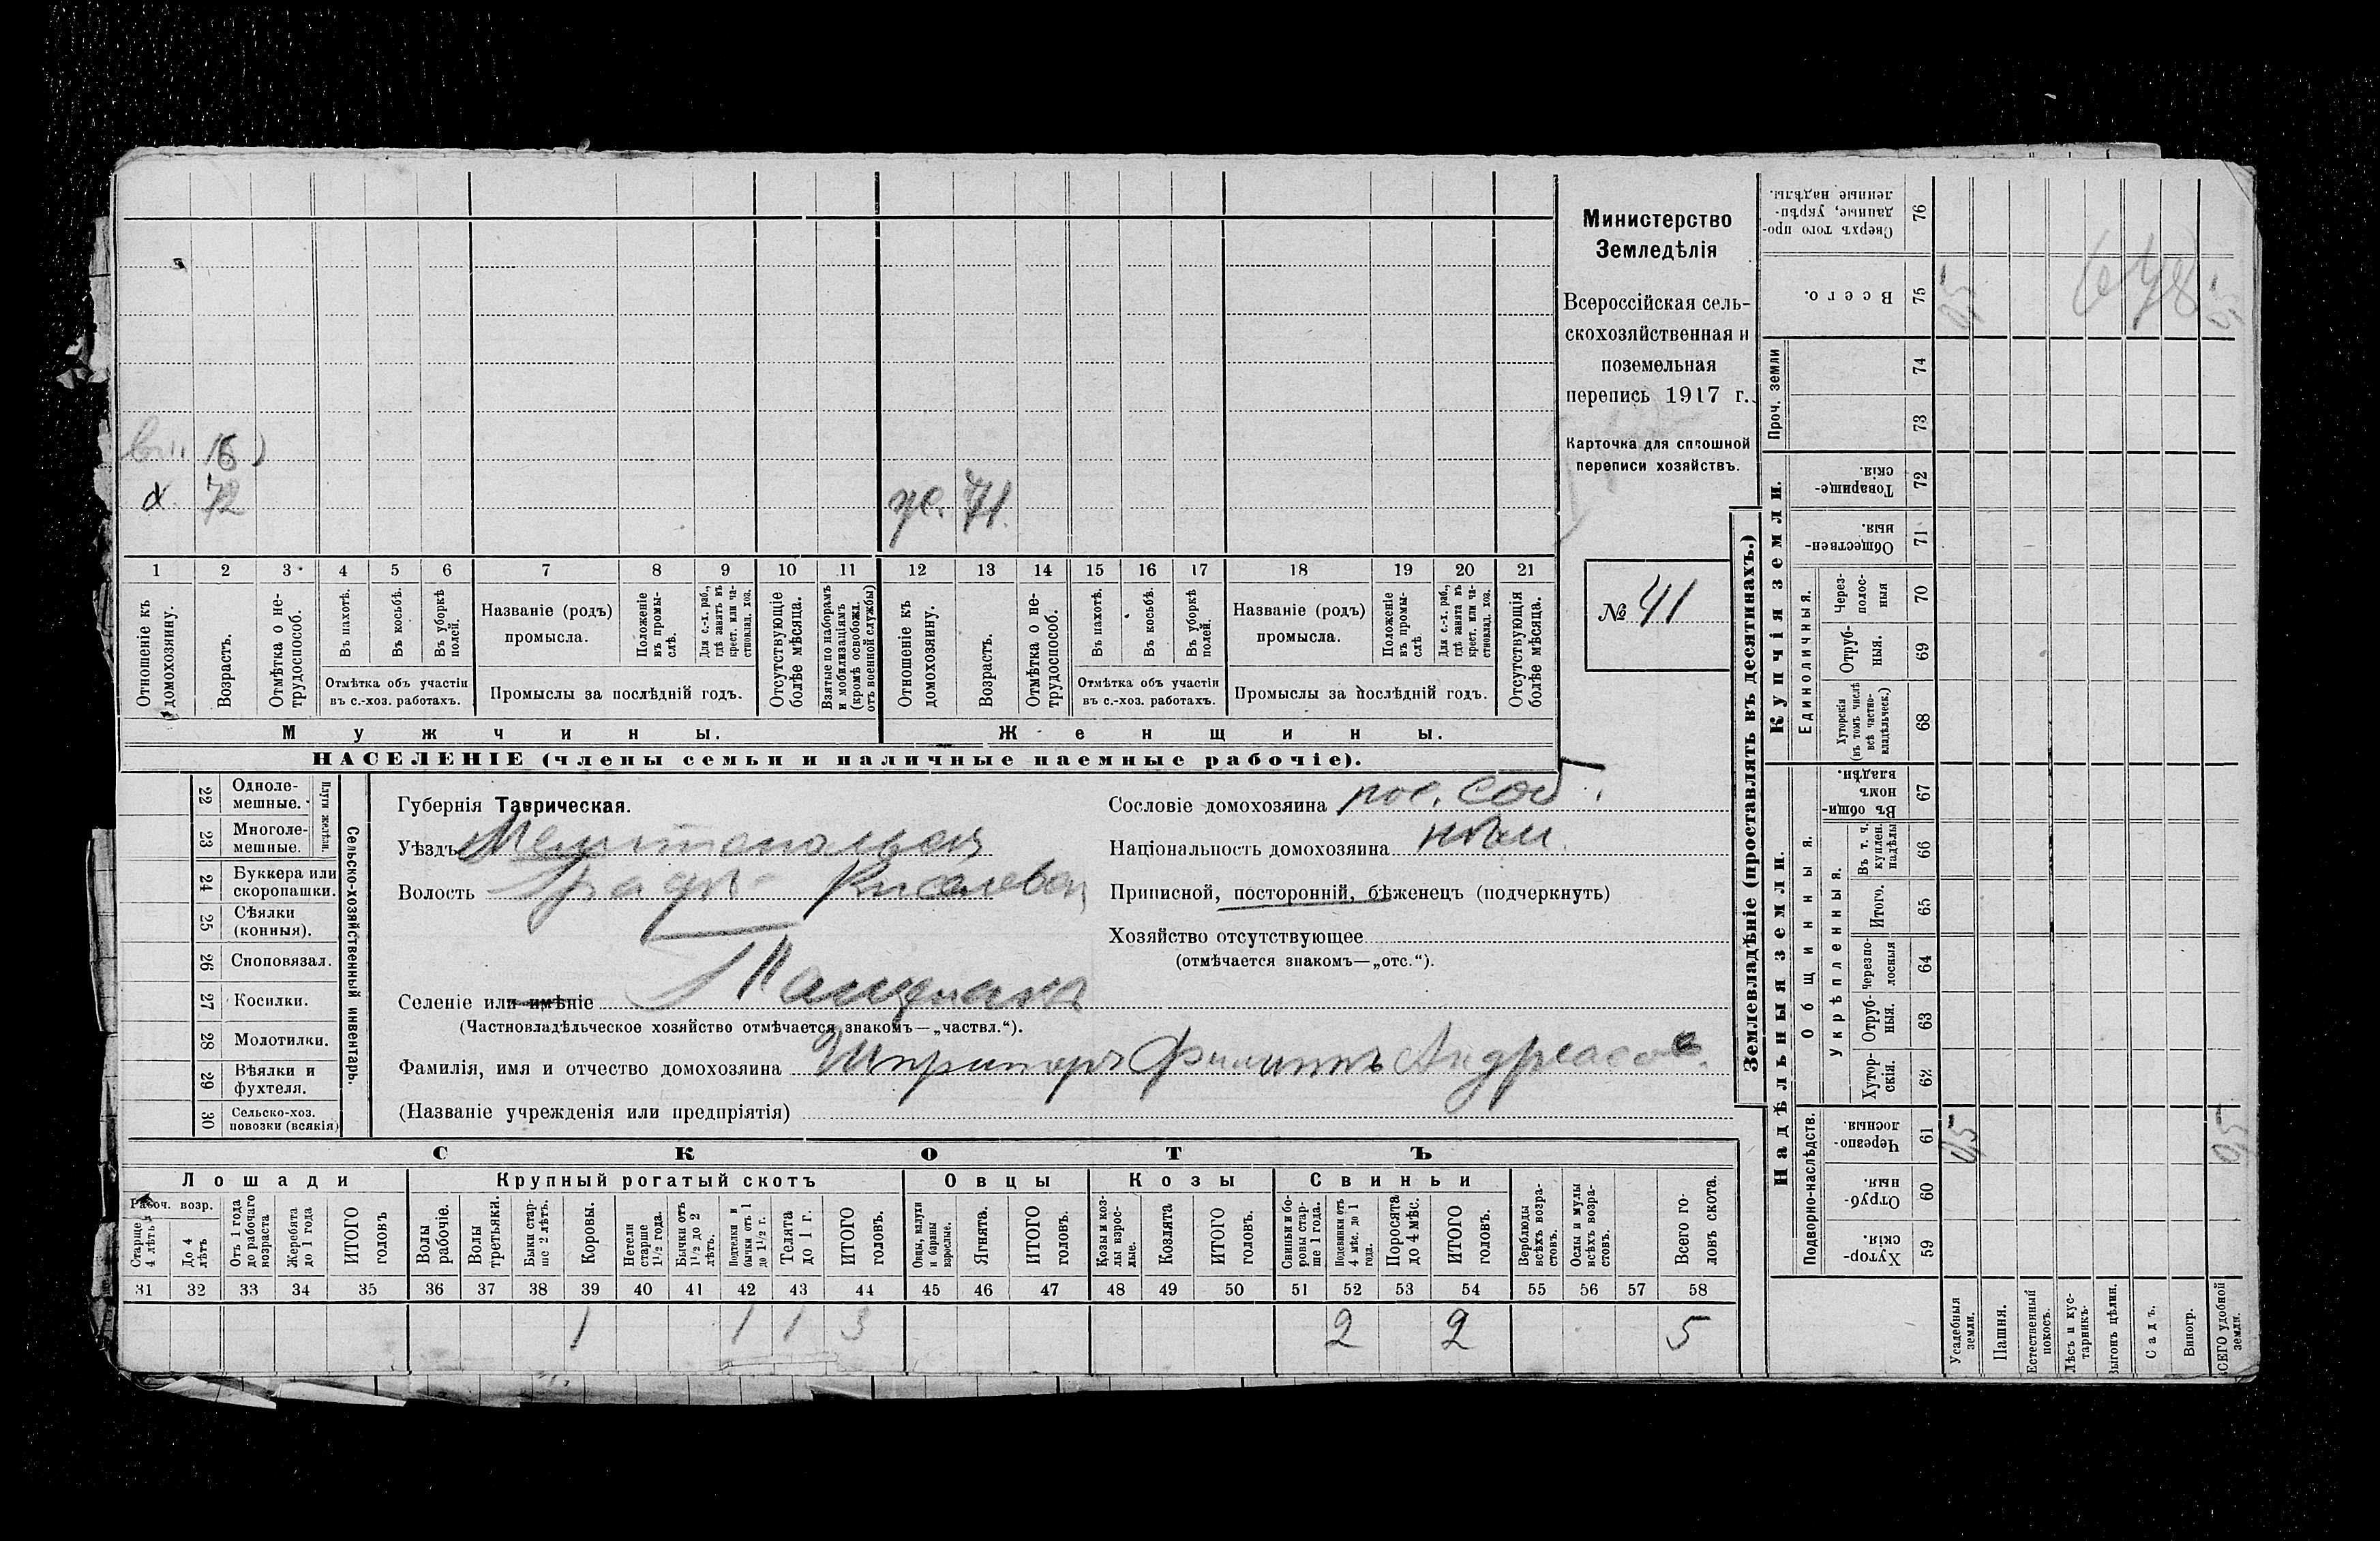 Министерство
Земледѣлія
Всероссійская сель-
скохозяйственная и
поземельная
перепись 1917 г.
Карточка для сплошной
переписи хозяйствъ.
№ 41
16
72
ж. 71.
1 2 3 4 5 6 7 8 9 10 11 12 13 14 15 16 17 18 19 20 21
Отношеніе къ домохозяину.
Возрастъ.
Отмѣтка о не-трудоспособ.
Въ пахотѣ.
Въ косьбѣ.
Въ уборкѣ полей.
Отмѣтка объ участіи въ с.-хоз. работахъ.
Названіе (родъ) промысла.
Положеніе въ промы-слѣ.
Для с.-х. раб., гдѣ занятъ въ крест. или ча-стновлад. хоз.
Промыслы за послѣдній годъ.
Отсутствующіе болѣе мѣсяца.
Взятые по наборамъ и мобилизаціямъ (кромѣ освобожд. отъ военной службы)
Отношеніе къ домохозяину.
Возрастъ.
Отмѣтка о не-трудоспособ.
Въ пахотѣ.
Въ косьбѣ.
Въ уборкѣ полей.
Отмѣтка объ участіи въ с.-хоз. работахъ.
Названіе (родъ) промысла.
Положеніе въ промы-слѣ.
Для с.-х. раб., гдѣ занята въ крест. или ча-стновлад. хоз.
Промыслы за послѣдній годъ.
Отсутствующія болѣе мѣсяца.
Мужчины.
Женщины.
НАСЕЛЕНІЕ (члены семьи и наличные наемные рабочіе).
22 Одноле-мешные.
23 Многоле-мешные.
Плуги желѣзн.
24 Буккера или скоропашки.
25 Сѣялки (конныя).
26 Сноповязал.
27 Косилки.
28 Молотилки.
29 Вѣялки и фухтеля.
30 Сельско-хоз. повозки (всякія)
Сельско-хозяйственный инвентарь.
Губернія Таврическая.
Уѣздъ
Волость
Селеніе или имѣніе
(Частновладѣльческое хозяйство отмѣчается знакомъ—„частвл.“).
Фамилія, имя и отчество домохозяина Филиппъ
(Названіе учрежденія или предпріятія)
Сословіе домохозяина пос. соб.
Національность домохозяина нѣм.
Приписной, посторонній, бѣженецъ (подчеркнуть)
Хозяйство отсутствующее
(отмѣчается знакомъ—„отс.“).
СКОТЪ
Лошади
Крупный рогатый скотъ
Овцы
Козы
Свиньи
Рабоч. возр.
Старше 4 лѣтъ
До 4 лѣтъ
Отъ 1 года до рабочаго возраста
Жеребята до 1 года
ИТОГО головъ
Волы рабочіе.
Волы третьяки.
Быки стар-ше 2 лѣтъ.
Коровы.
Нетели старше 1½ года.
Бычки отъ 1½ до 2 лѣтъ.
Подтелки и бычки отъ 1 до 1½ г.
Телята до 1 г.
ИТОГО головъ.
Овцы, валухи и бараны взрослые.
Ягнята.
ИТОГО головъ.
Козы и коз-лы взрос-лые.
Козлята
ИТОГО головъ.
Свиньи и бо-ровы стар-ше 1 года.
Подсвинки отъ 4 мѣс. до 1 года.
Поросята до 4 мѣс.
ИТОГО головъ.
Верблюды всѣхъ возра-стовъ.
Ослы и мулы всѣхъ возра-стовъ.
Всего го-ловъ скота.
31 32 33 34 35 36 37 38 39 40 41 42 43 44 45 46 47 48 49 50 51 52 53 54 55 56 57 58
1 1 1 3 2 2 5
Землевладѣніе (проставлять въ десятинахъ.)
Надѣльныя земли.
Купчія земли.
Проч. земли
Подворно-наслѣдств.
Общинныя.
Укрѣпленныя.
Единоличныя.
Хутор-скія. 59
Отруб-ныя. 60
Черезпо-лосныя. 61
Хутор-скія. 62
Отруб-ныя. 63
Черезпо-лосныя 64
Итого. 65
Въ т. ч. куплен. надѣлы 66
Въ общи-номъ владѣн. 67
Хуторскія (въ томъ числѣ всѣ частно-владѣльческ.) 68
Отруб-ныя. 69
Через-полос-ныя 70
Обществен-ныя. 71
Товарище-скія. 72
73
74
Всего. 75
Сверхъ того про-данные, укрѣп-ленные надѣлы. 76
Усадебныя земли.
Пашня.
Естественный покосъ.
Лѣсъ и кус-тарникъ.
Выгонъ цѣлин.
Садъ.
Виногр.
ВСЕГО удобной земли.